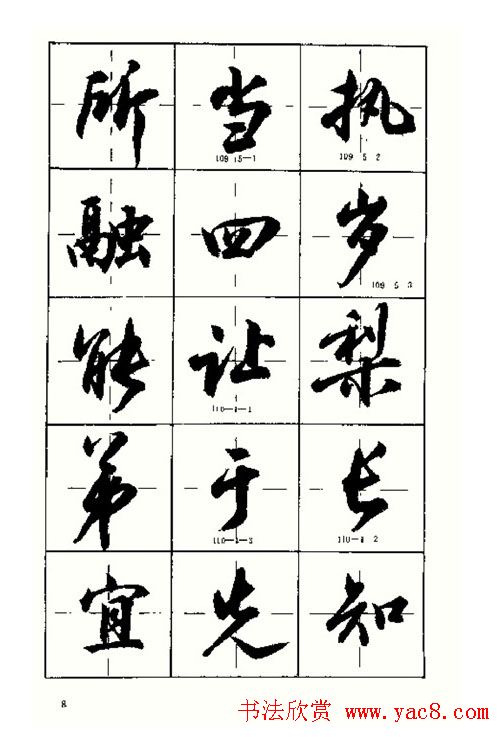 所当执
109 5-1
109 5 2
融四岁
109 5 3
能让梨
110-1-1
弟于长
110-1-3
110-1 2
宜先知
8
书法欣赏 www.yac8.com